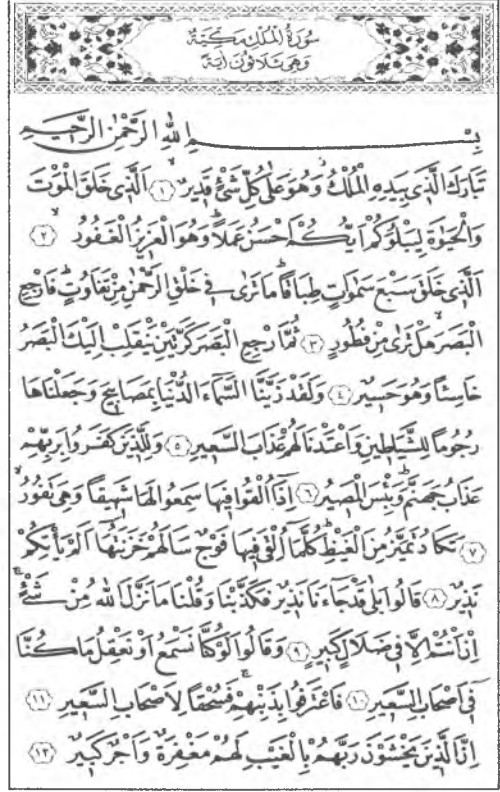 سُورَةُ الْمُلْكِ مَكِّيَّةٌ
وَهِيَ ثَلَاثُونَ اٰيَةً
بِسْمِ اللّٰهِ الرَّحْمٰنِ الرَّحٖيمِ
تَبَارَكَ الَّذٖى بِيَدِهِ الْمُلْكُ وَهُوَ عَلٰى كُلِّ شَىْءٍ قَدٖيرٌ ﴿١﴾ اَلَّذٖى خَلَقَ الْمَوْتَ
وَالْحَيٰوةَ لِيَبْلُوَكُمْ اَيُّكُمْ اَحْسَنُ عَمَلًا وَهُوَ الْعَزٖيزُ الْغَفُورُ ﴿٢﴾
اَلَّذٖى خَلَقَ سَبْعَ سَمٰوَاتٍ طِبَاقًا مَا تَرٰى فٖى خَلْقِ الرَّحْمٰنِ مِنْ تَفَاوُتٍ فَارْجِعِ
الْبَصَرَ هَلْ تَرٰى مِنْ فُطُورٍ ﴿٣﴾ ثُمَّ ارْجِعِ الْبَصَرَ كَرَّتَيْنِ يَنْقَلِبْ اِلَيْكَ الْبَصَرُ
خَاسِئًا وَهُوَ حَسٖيرٌ ﴿٤﴾ وَلَقَدْ زَيَّنَّا السَّمَاءَ الدُّنْيَا بِمَصَابٖيحَ وَجَعَلْنَاهَا
رُجُومًا لِلشَّيَاطٖينِ وَاَعْتَدْنَا لَهُمْ عَذَابَ السَّعٖيرِ ﴿٥﴾ وَلِلَّذٖينَ كَفَرُوا بِرَبِّهِمْ
عَذَابُ جَهَنَّمَ وَبِئْسَ الْمَصٖيرُ ﴿٦﴾ اِذَا اُلْقُوا فٖيهَا سَمِعُوا لَهَا شَهٖيقًا وَهِىَ تَفُورُ
﴿٧﴾ تَكَادُ تَمَيَّزُ مِنَ الْغَيْظِ كُلَّمَا اُلْقِىَ فٖيهَا فَوْجٌ سَاَلَهُمْ خَزَنَتُهَا اَلَمْ يَاْتِكُمْ
نَذٖيرٌ ﴿٨﴾ قَالُوا بَلٰى قَدْ جَاءَنَا نَذٖيرٌ فَكَذَّبْنَا وَقُلْنَا مَا نَزَّلَ اللّٰهُ مِنْ شَىْءٍ
اِنْ اَنْتُمْ اِلَّا فٖى ضَلَالٍ كَبٖيرٍ ﴿٩﴾ وَقَالُوا لَوْ كُنَّا نَسْمَعُ اَوْ نَعْقِلُ مَا كُنَّا
فٖى اَصْحَابِ السَّعٖيرِ ﴿١٠﴾ فَاعْتَرَفُوا بِذَنْبِهِمْ فَسُحْقًا لِاَصْحَابِ السَّعٖيرِ ﴿١١﴾
اِنَّ الَّذٖينَ يَخْشَوْنَ رَبَّهُمْ بِالْغَيْبِ لَهُمْ مَغْفِرَةٌ وَاَجْرٌ كَبٖيرٌ ﴿١٢﴾